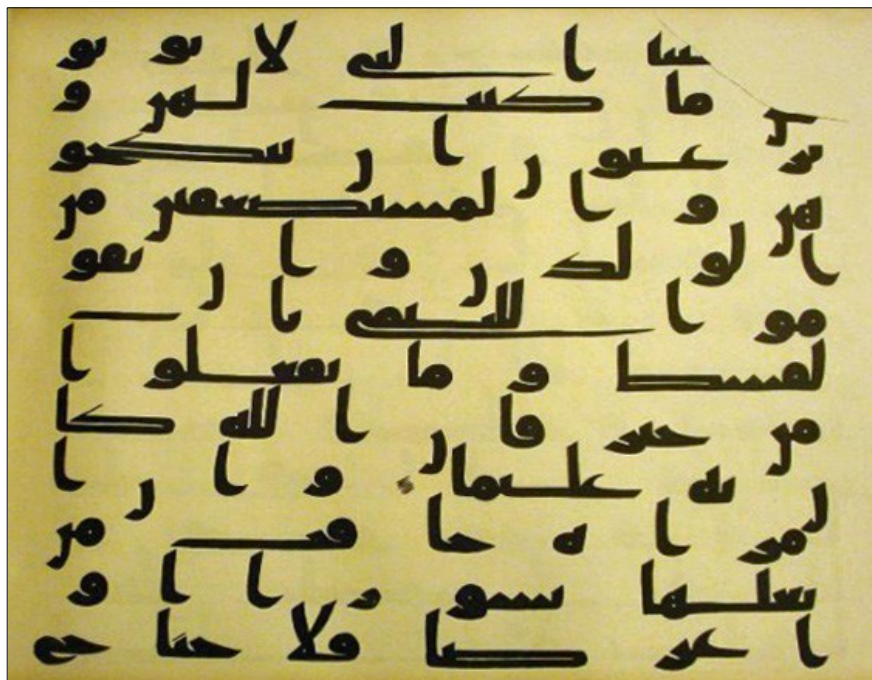 نسا التى لا تو تو
ما كتب لهن و
تر غبو ن ا ن تنكحو
هن و ا لمستضعفين من
ا لو لد ن و ا ن تقو
مو ا لليتمى با
لقسط و ما تفعلو ا
من خير فا ن ا لله كا
ن به عليما و ا ن ا
مر ا ة خا فت من
بعلها نشو ز ا ا و
ا عر ضا فلا جنا ح